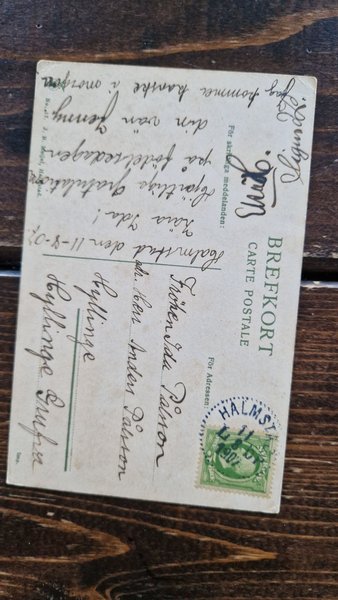 BREFKORT
CARTE POSTALE
För skriftliga meddelanden:
För Adressen:
Halmstad den 11-8-07
Kära Ida!
Hjärtliga Gratulationer
på födelsedagen
din vän Jenny
jag kommer kanske i morgon
HALMSTAD
11 8
1907
Fröken Ida Pålsson
Adr. Herr Anders Pålsson
Hyllinge
Hyllinge Grufva